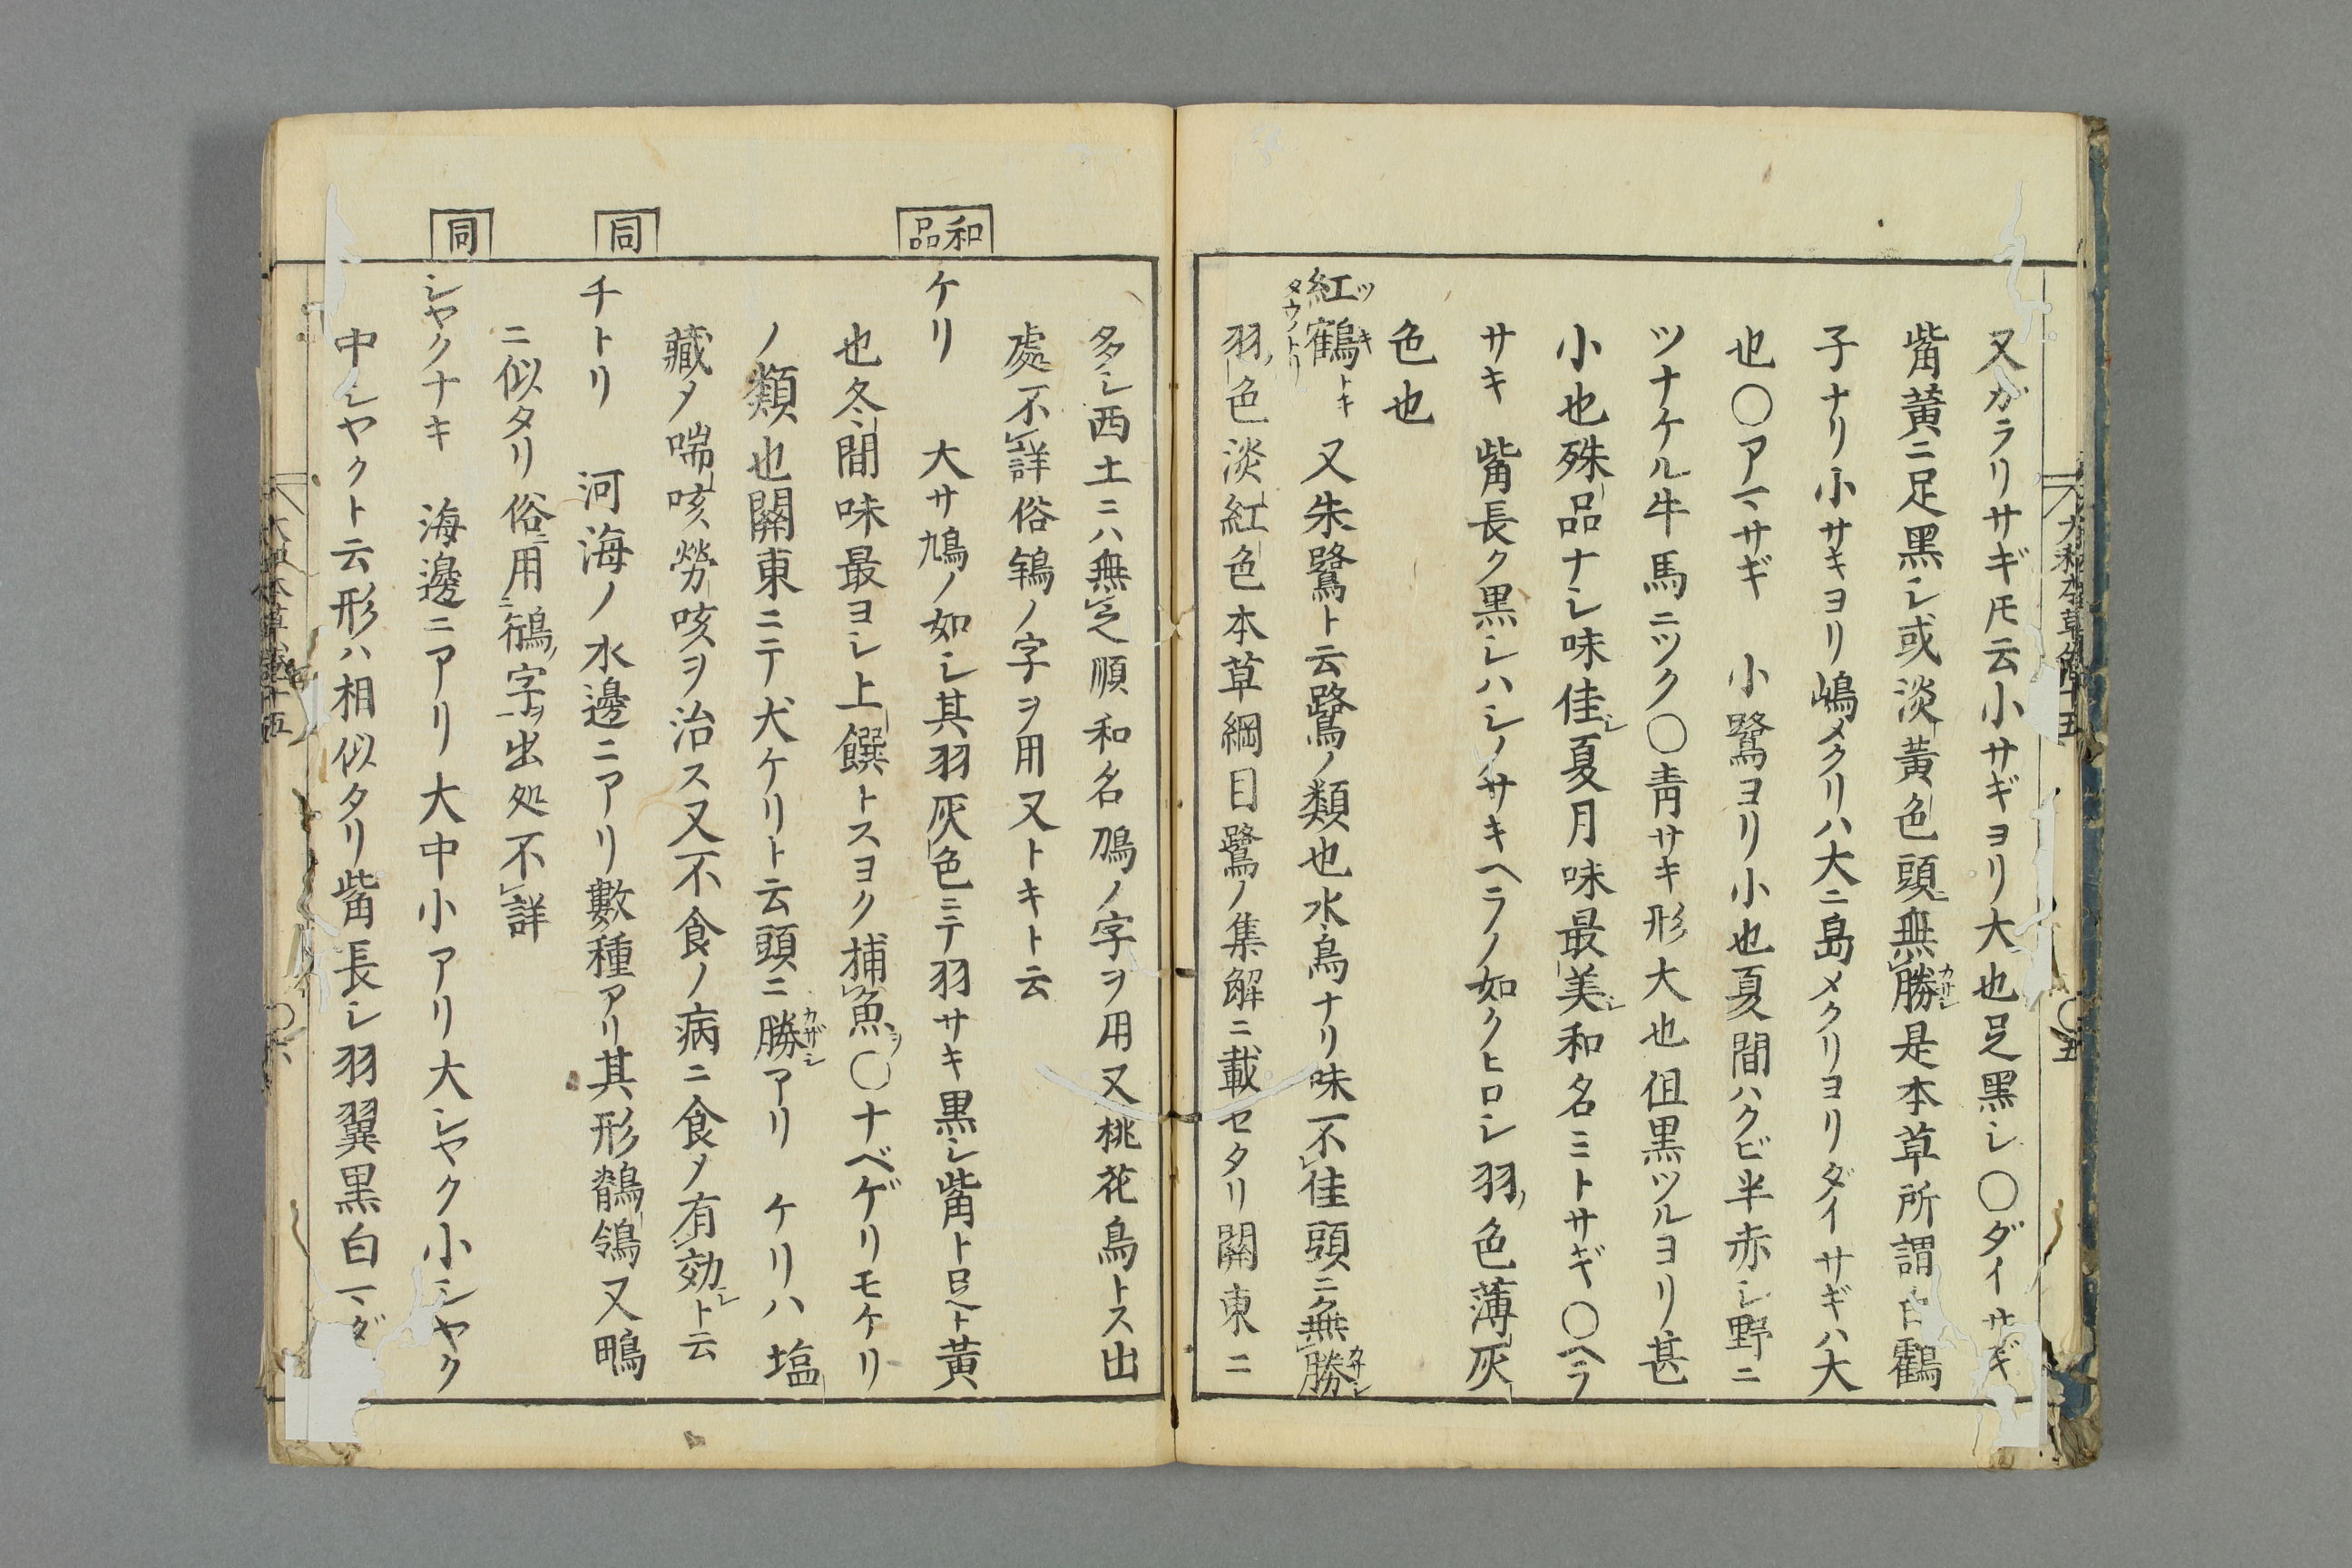 大和本草卷十五
〇五
又ガラリサギ𪜈云小サギヨリ大也足黑シ〇ダイサギ
觜黄ニ足黑シ或淡黄色頭ニ無勝カザシ是本草所謂白鶴
子ナリ小サキヨリ嶋メクリハ大ニ島メクリヨリダイサギハ大
也〇アマサギ 小鷺ヨリ小也夏間ハクビ半赤シ野ニ
ツナケル牛馬ニツク〇靑サキ形大也但黒ツルヨリ甚
小也殊品ナシ味佳シ夏月味最美シ和名ミトサギ〇ヘラ
サキ 觜長ク黒シハシノサキヘラノ如クヒロシ羽ノ色薄灰
色也
紅鶴ツキ トキ タウノトリ 又朱鷺ト云鷺ノ類也水鳥ナリ味不佳頭ニ無勝カザシ
羽ノ色淡紅色本草綱目鷺ノ集解ニ載セタリ關東ニ
多シ西土ニハ無之順和名鴇ノ字ヲ用又桃花鳥トス出
處不詳俗鴾ノ字ヲ用又トキト云
和品
ケリ 大サ鳩ノ如シ其羽灰色ニテ羽サキ黒シ觜ト足ト黄
也冬間味最ヨシ上饌トスヨク捕魚ヲ〇ナベゲリモケリ
ノ類也關東ニテ犬ケリト云頭ニ勝カザシアリ ケリハ塩
藏メ喘咳勞咳ヲ治ス又不食ノ病ニ食メ有効シト云
同
チトリ 河海ノ水邊ニアリ數種アリ其形鶺鴒又鴫
ニ似タリ俗ニ用鵆ノ字ヲ出処不詳
同
シヤクナキ 海邊ニアリ大中小アリ大シヤク小シヤク
中シヤクト云形ハ相似タリ觜長シ羽翼黒白マダ
大和本草卷十五
〇六